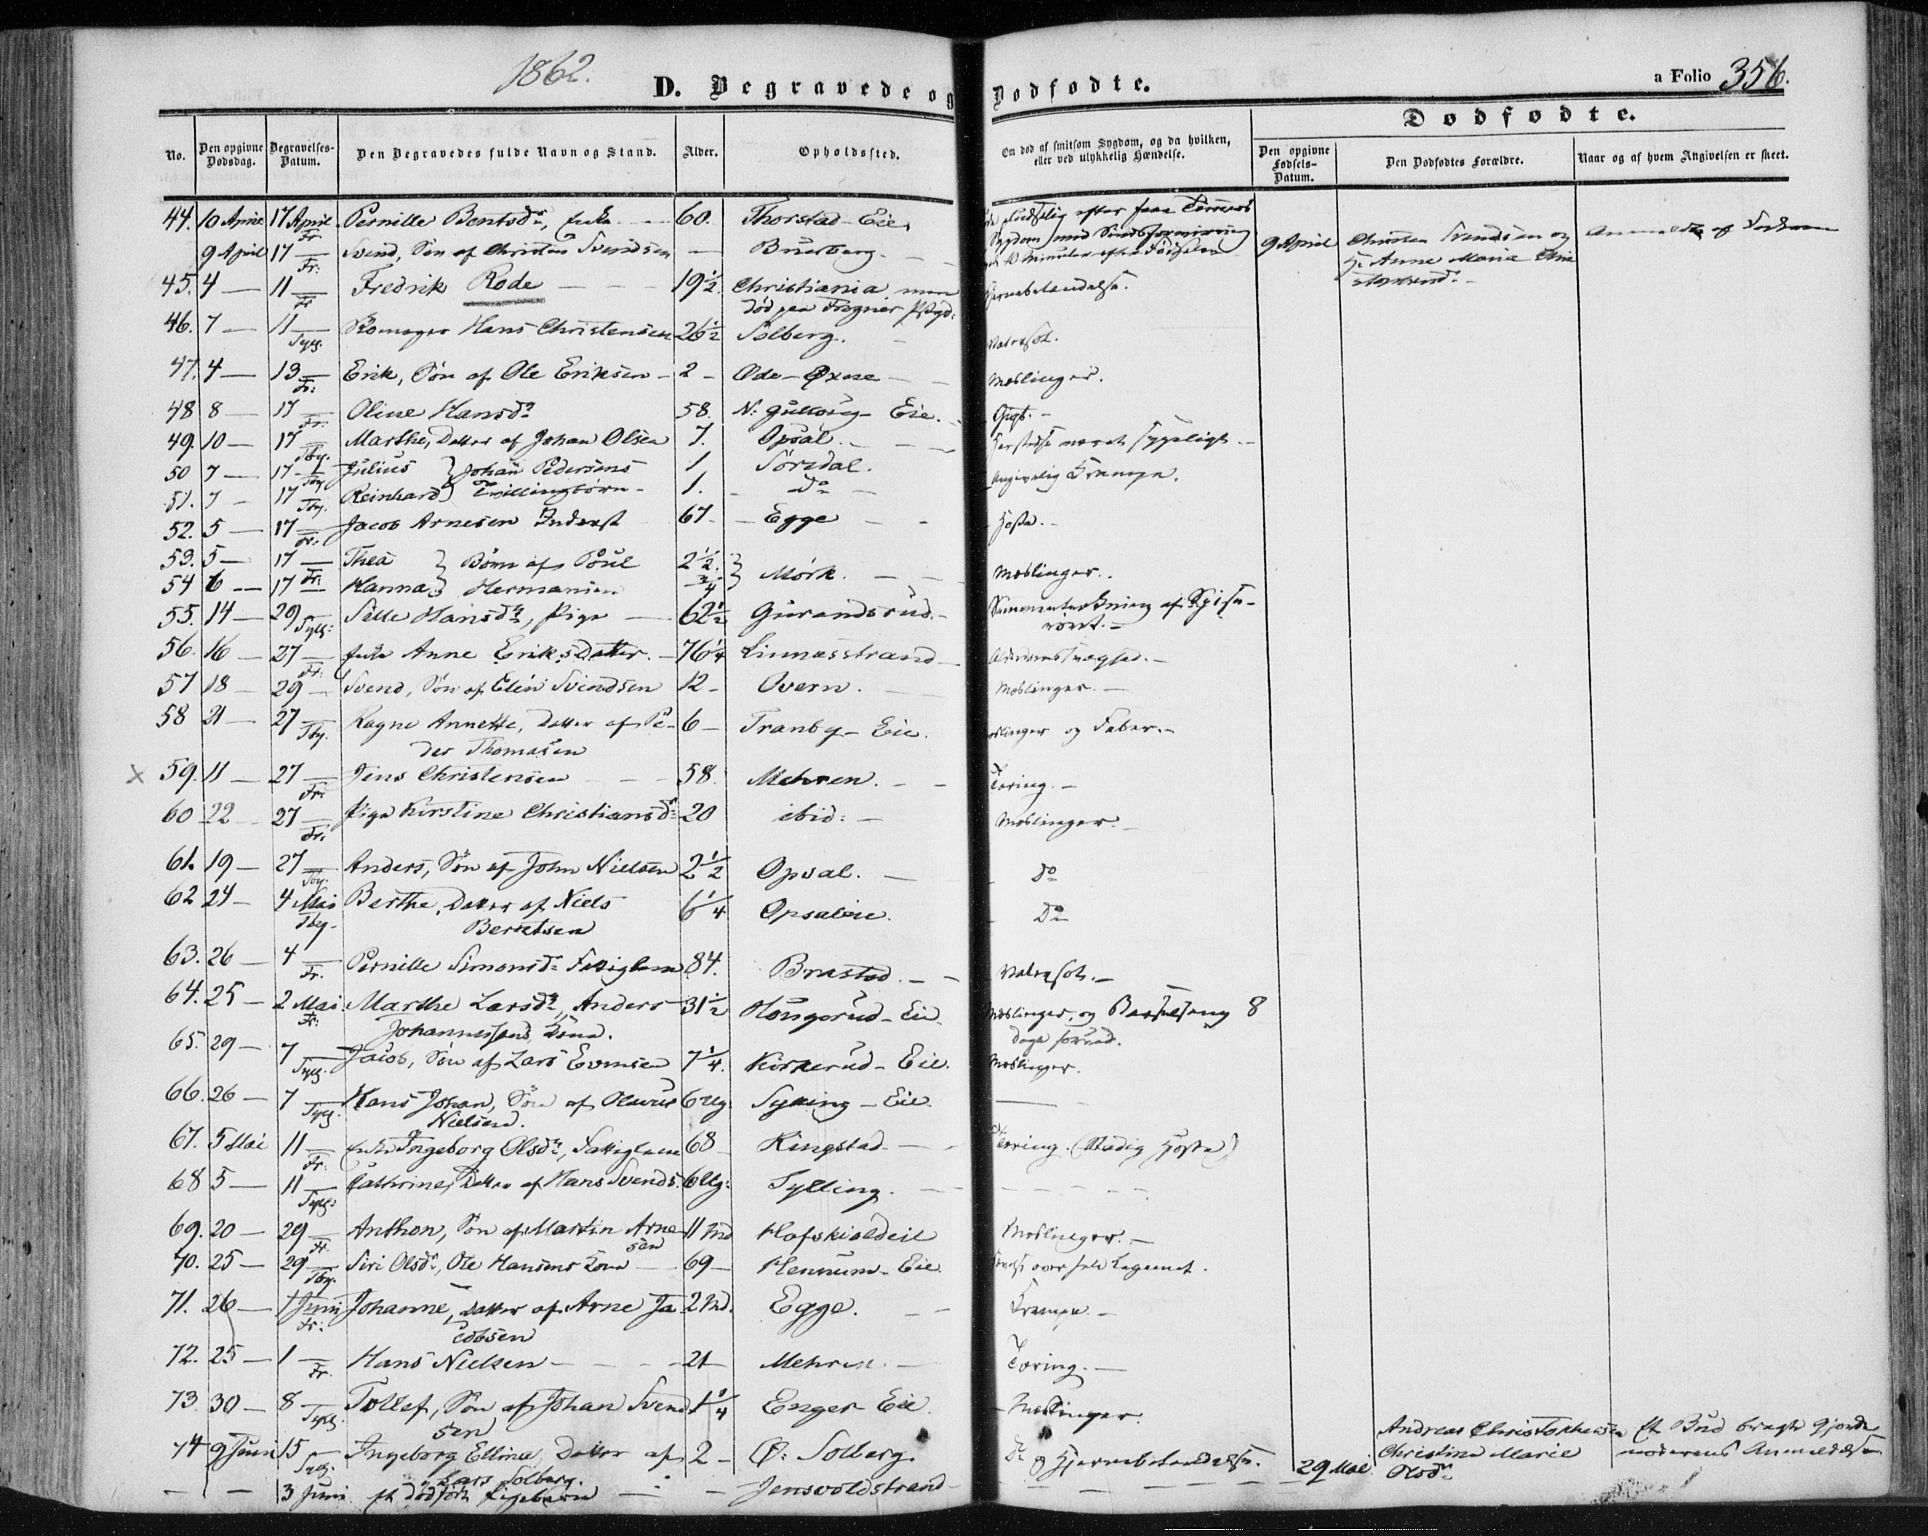 1862.
D. Begravede og Dødfødte.
a Folio 356.
Dødfødte.
No.
Den opgivne Dødsdag.
Begravelses-Datum.
Den Begravedes fulde Navn og Stand.
Alder.
Opholdssted.
Om død af smitsom Sygdom, og da hvilken, eller ved ulykkelig Hændelse.
Den opgivne Fødsels-Datum.
Den Dødfødtes Forældre.
Naar og af hvem Angivelsen er skeet.
44. 10 April 17 April Fr. Pernille Bentsdr, Enke 60. Thorstad Eie
9 April 17 Fr. Svend, Søn af Christen Svendsen Buerberg. 9 April Christen Svendsen og H. Anne Marie
45. 4 11 Fr Fredrik Rode 19½ Christiania, men død paa Frogner Hjernebetændelse.
46. 7 11 Sylg. Skomager Hans Christensen 26½ Solberg. Vatersot.
47. 4 13 Fr. Erik, Søn af Ole Eriksen 2 Øde-Øxne Mæslinger.
48 8 17 Fr. Oline Hansdr 58. N. Gullaug Eie. Gigt.
49. 10 17 Tbg. Marthe, Datter af Johan Olsen 7. Opsal. været sygeligt.
50 7 17 Tbg Julius } Johan Pedersens 1 Sørsdal. Angivelig Krampe.
51. 7 17 Tbg. Reinhard } Tvillingbørn 1. Do
52. 5 17 Fr. Jacob Arnesen Inderst 67 Egge Hoste.
53. 5 17 Thea } Børn af Poul 2½ } Mørk. Mæslinger.
54 6 17 Fr. Hanna } Hermansen ¾
55. 14 29 Sylg. Sille Hansdr, Pige 62½ Gurandsrud. Sammentrækning af Spiserøret.
56. 16 27 Fr. Enke Anne Eriksdatter. 76¼ Linnesstrand Alderdomssvaghed.
57 18 29 Svend, Søn af Elén Svendsen 12 Overn. Mæslinger.
58 21 27 Tbg. Ragne Annette, Datter af Peder Thomasen 6 Tranby Eie. Mæslinger og Feber.
x 59. 11 27 Fr. Jens Christensen 58. Mehren. Tæring.
60 22 27 Fr. Pige Kirstine Christiansdr 20 ibid: Mæslinger.
61. 19 27 Tbg. Anders, Søn af John Nielsen 2½ Opsal. Do
62 24 4 Mai Tbg. Berthe, Datter af Niels Berntsen 6¼ Opsaleie. Do
63. 26 4 Fr. Pernille Simonsdr Fattiglem 84. Brastad. Vatersot.
64. 25 2 Mai Fr. Marthe Larsdr, Anders Johannessens Kone. 31½ Hongerud Eie Mæslinger, og Barselseng 8 Dage forud.
65. 29 7 Sylg. Jacob, Søn af Lars Evensen 7¼. Kirkerud Eie. Mæslinger.
66. 26 7 Sylg. Hans Johan, Søn af Olavus Nielsen. 6 Ug. Sylling Eie.
67. 5 Mai 11 Fr. Enke Ingeborg Olsdr, Fattiglem 68 Ringstad Tæring.
68 5 11 Sylg. Cathrine, Datter af Hans Svends. 6 Ug: Sylling.
69. 20 29 Fr. Anthon, Søn af Martin Arnesen 11 Md Hofskioldeie Mæslinger.
70. 25 29 Tbg. Siri Olsdr, Ole Hansens Kone 69 Hennum Eie over hele Legemet.
71. 26 1 Juni Fr. Johanne, Datter af Arne Jacobsen 2 Md. Egge. Krampe.
72. 25 1 Fr. Hans Nielsen 21 Mehren. Tæring.
73. 30 8 Sylg. Tollef, Søn af Johan Svendsen 1¼ Enger Eie. Mæslinger.
74 9 Juni 15 Sylg. Ingeborg Elline, Datter af Lars Solberg. 2 Ø: Solberg. Do og Hjernebetændelse. 29 Mai Andreas Christophersen Christine Marie Olsdr Et Bud bragte Gjordemoderens Anmeldelse
3 Juni et dødfødt Pigebarn Jensvoldstrand